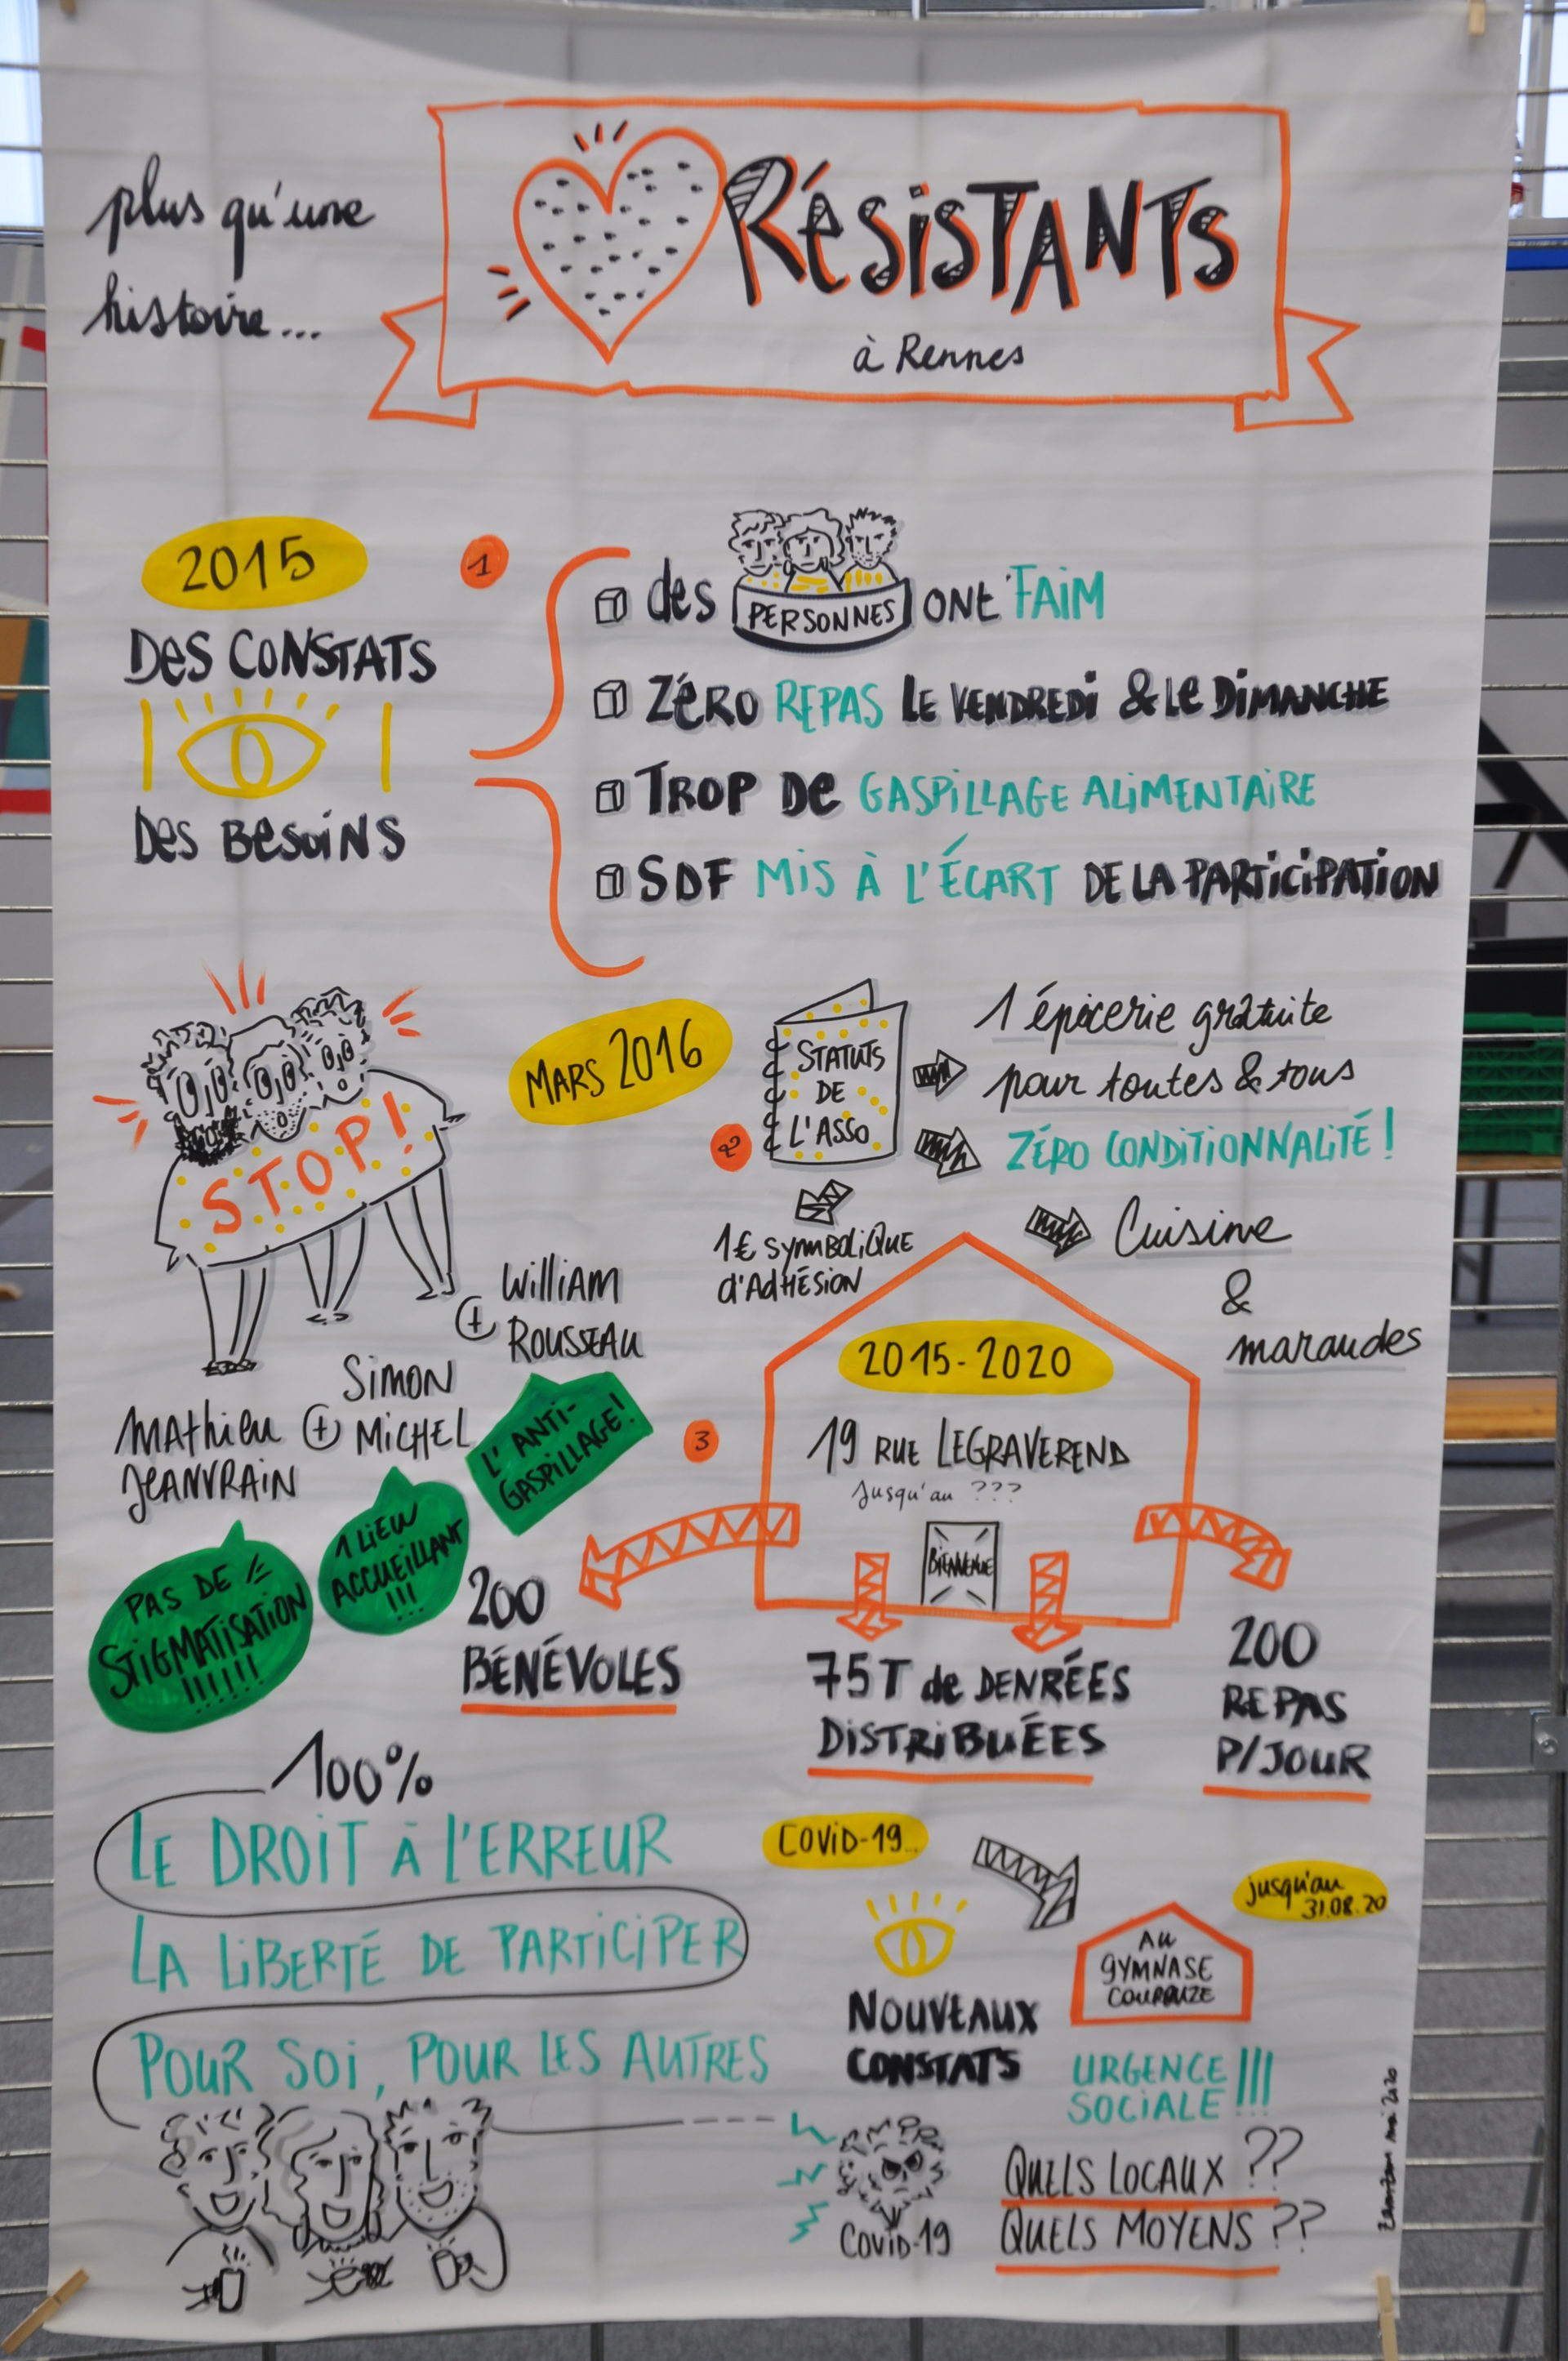 plus qu'une
histoire...
RÉSISTANTS
à Rennes
2015
DES CONSTATS
DES BESOINS
1
des PERSONNES ONT FAIM
ZÉRO REPAS LE VENDREDI & LE DIMANCHE
TROP DE GASPILLAGE ALIMENTAIRE
SDF MIS À L'ÉCART DE LA PARTICIPATION
STOP!
MARS 2016
2
STATUTS
DE
L'ASSO
1 épicerie gratuite
pour toutes & tous
ZÉRO CONDITIONNALITÉ !
Cuisine
&
maraudes
1€ SYMBOLIQUE
d'ADHÉSION
MATHIEU
JEANVRAIN
+ SIMON
MICHEL
+ WILLIAM
ROUSSEAU
PAS DE
STIGMATISATION
!!!!!!
1 LIEU
ACCUEILLANT
!!!
L'ANTI-
GASPILLAGE!
3
2015-2020
19 RUE LEGRAVEREND
Jusqu'au ???
BIENVENUE
200
BÉNÉVOLES
75T de DENRÉES
DISTRIBUÉES
200
REPAS
P/JOUR
100%
LE DROIT À L'ERREUR
LA LIBERTÉ DE PARTICIPER
POUR SOI, POUR LES AUTRES
COVID-19...
NOUVEAUX
CONSTATS
jusqu'au
31.08.20
AU
GYMNASE
COURROUZE
URGENCE
SOCIALE !!!
COVID-19
QUELS LOCAUX ??
QUELS MOYENS ??
mai 2020